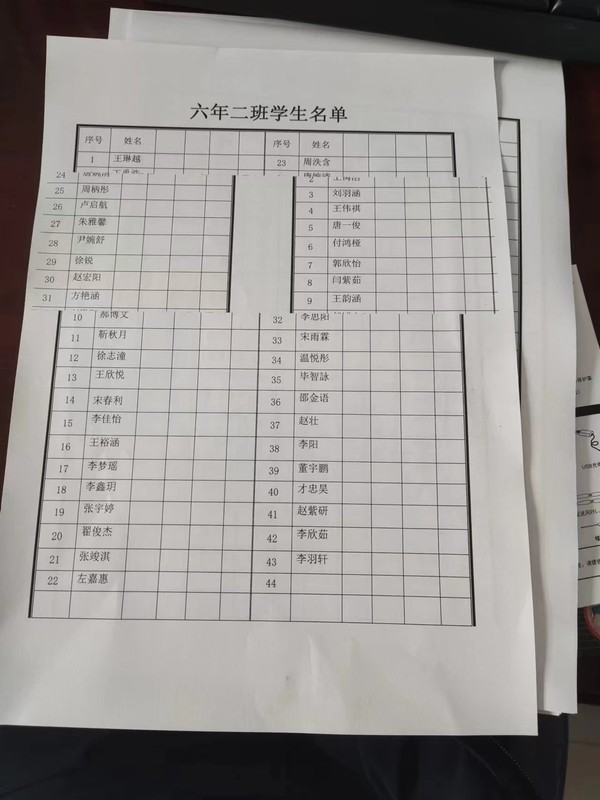 六年二班学生名单
序号 姓名 序号 姓名
1 王琳越 23 周泆含
24 2
25 周柄彤 3 刘羽涵
26 卢启航 4 王伟祺
27 朱雅馨 5 唐一俊
28 尹婉舒 6 付鸿桠
29 徐锐 7 郭欣怡
30 赵宏阳 8 闫紫茹
31 方艳涵 9 王韵涵
10 郝博文 32 李思阳
11 靳秋月 33 宋雨霖
12 徐志潼 34 温悦彤
13 王欣悦 35 毕智詠
14 宋春利 36 邵金语
15 李佳怡 37 赵壮
16 王裕涵 38 李阳
17 李梦瑶 39 董宇鹏
18 李鑫玥 40 才忠昊
19 张宇婷 41 赵紫研
20 翟俊杰 42 李欣茹
21 张竣淇 43 李羽轩
22 左嘉惠 44